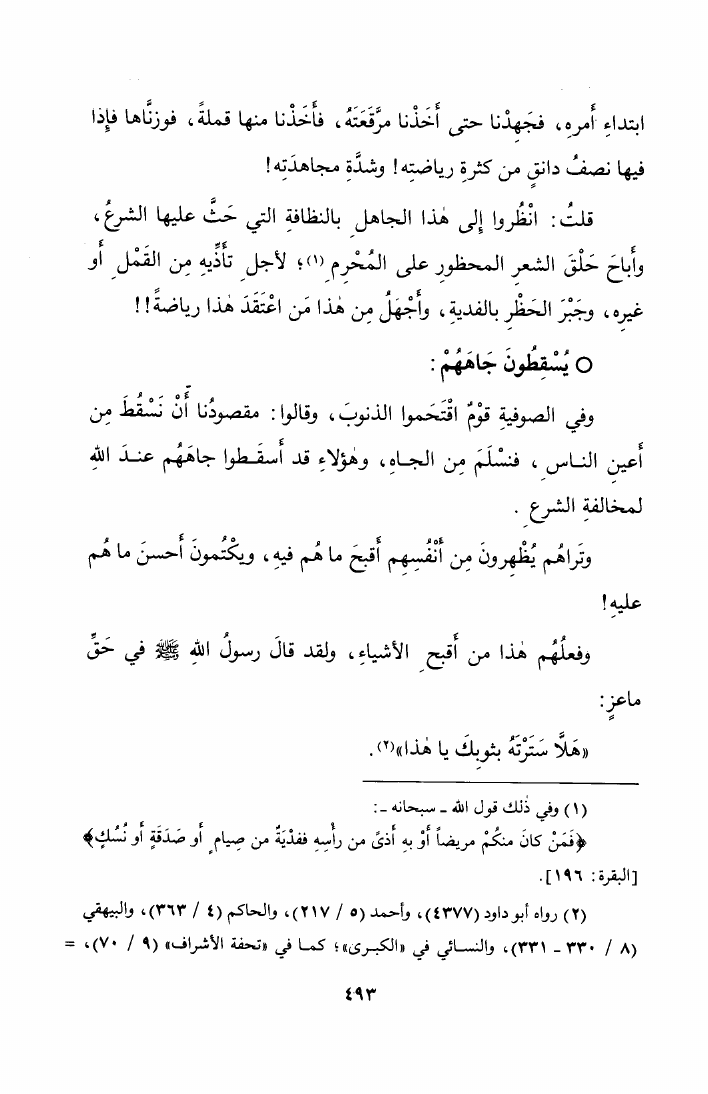 ابتداءِ أَمرِهِ، فجَهِدْنا حتى أَخَذْنا مرَّقَعَتَهُ، فأَخَذْنا منها قملةً، فوزنَّاها فإِذا
فيها نصفُ دانقٍ من كثرةِ رياضتِه! وشدَّةِ مجاهدَتِه!
قلتُ: انْظُروا إِلى هٰذا الجاهلِ بالنظافةِ التي حَثَّ عليها الشرعُ،
وأَباحَ حَلْقَ الشعرِ المحظورِ على المُحْرِمِ(١)؛ لأجلِ تأَذِّيهِ مِن القَمْلِ أَو
غيرِه، وجَبْرَ الحَظْرِ بالفديةِ، وأَجْهَلُ مِن هٰذا مَن اعْتَقَدَ هٰذا رياضةً!!
○ يُسْقِطُونَ جَاهَهُمْ:
وفي الصوفيةِ قوْمٌ اقْتَحَموا الذنوبَ، وقالوا: مقصودُنا أَنْ نَسْقُطَ مِن
أَعينِ الناسِ، فنسْلَمَ مِن الجاهِ، وهٰؤلاءِ قد أَسقَطوا جاهَهُم عندَ اللهِ
لمخالفةِ الشرعِ.
وتَراهُم يُظْهِرونَ مِن أَنْفُسِهِم أَقبحَ ما هُم فيهِ، ويكْتُمونَ أَحسنَ ما هُم
عليهِ!
وفعلُهُم هٰذا من أَقبحِ الأشياءِ، ولقد قالَ رسولُ اللهِ ﷺ في حَقِّ
ماعزٍ:
«هَلَّا سَتَرْتَهُ بثوبِكَ يا هٰذا»(٢).
(١) وفي ذٰلك قول الله ـ سبحانه ـ:
﴿فَمَنْ كانَ منكُمْ مريضاً أَوْ بهِ أَذىً من رأسِهِ ففدْيَةٌ من صِيامٍ أَو صَدَقَةٍ أَو نُسُكٍ﴾
[البقرة: ١٩٦].
(٢) رواه أبو داود (٤٣٧٧)، وأحمد (٥ / ٢١٧)، والحاكم (٤ / ٣٦٣)، والبيهقي
(٨ / ٣٣٠ ـ ٣٣١)، والنسائي في «الكبرى»؛ كما في «تحفة الأشراف» (٩ / ٧٠)، =
٤٩٣